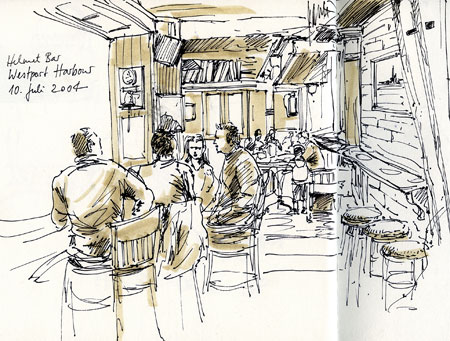 Helmet Bar
Westport Harbour
10. Juli 2004